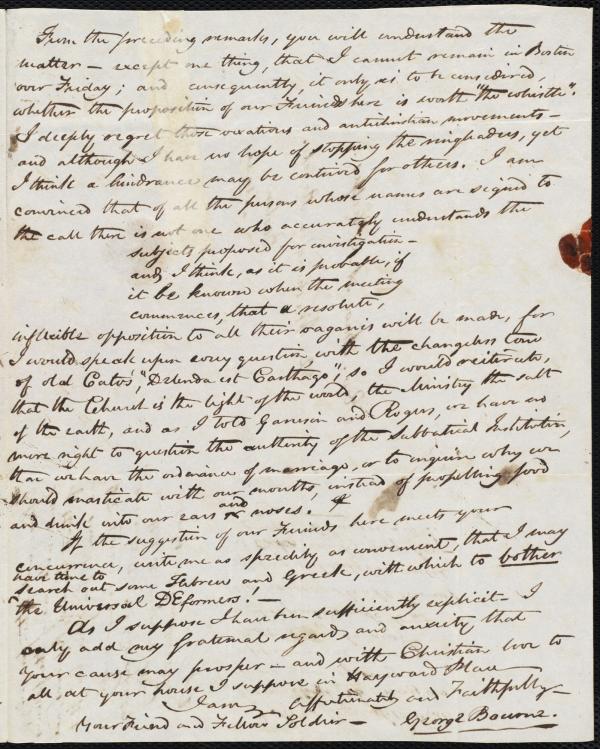 From the preceding remarks, you will understand the
matter – except one thing, that I cannot remain in Boston
over Friday; and consequently, it only is to be considered,
whether the proposition of our Friends here is worth "the whistle".
I deeply regret these vexations and antichristian movements –
and although I have no hope of stopping the ringleaders, yet
I think a hindrance may be contrived for others. I am
convinced that of all the persons whose names are signed to
the call there is not one who accurately understands the
subjects proposed for investigation –
and I think, as it is probable, if
it be known when the meeting
commences, that a resolute,
inflexible opposition to all their vagaries will be made, for
I would speak upon every question, with the changeless tone
of old Cato's, "Delenda est Carthago"; so I would reiterate,
that the Church is the light of the world, the Ministry the salt
of the earth, and as I told Garrison and Rogers, we have no
more right to question the authority of the Sabbatical Institution,
than we have the ordinance of marriage, or to inquire why we
should masticate with our mouths, instead of propelling food
and drink into our ears and noses.
If the suggestion of our Friends here meets your
concurrence, write me as speedily as convenient, that I may
have time to
search out some Hebrew and Greek, with which to bother
the Universal DEformers! –
As I suppose I have been sufficiently explicit – I
only add my fraternal regards and anxiety that
your cause may prosper – and with Christian love to
all at your house I suppose in Hayward Place
I am affectionately and Faithfully –
Your Friend and Fellow Soldier – George Bourne.